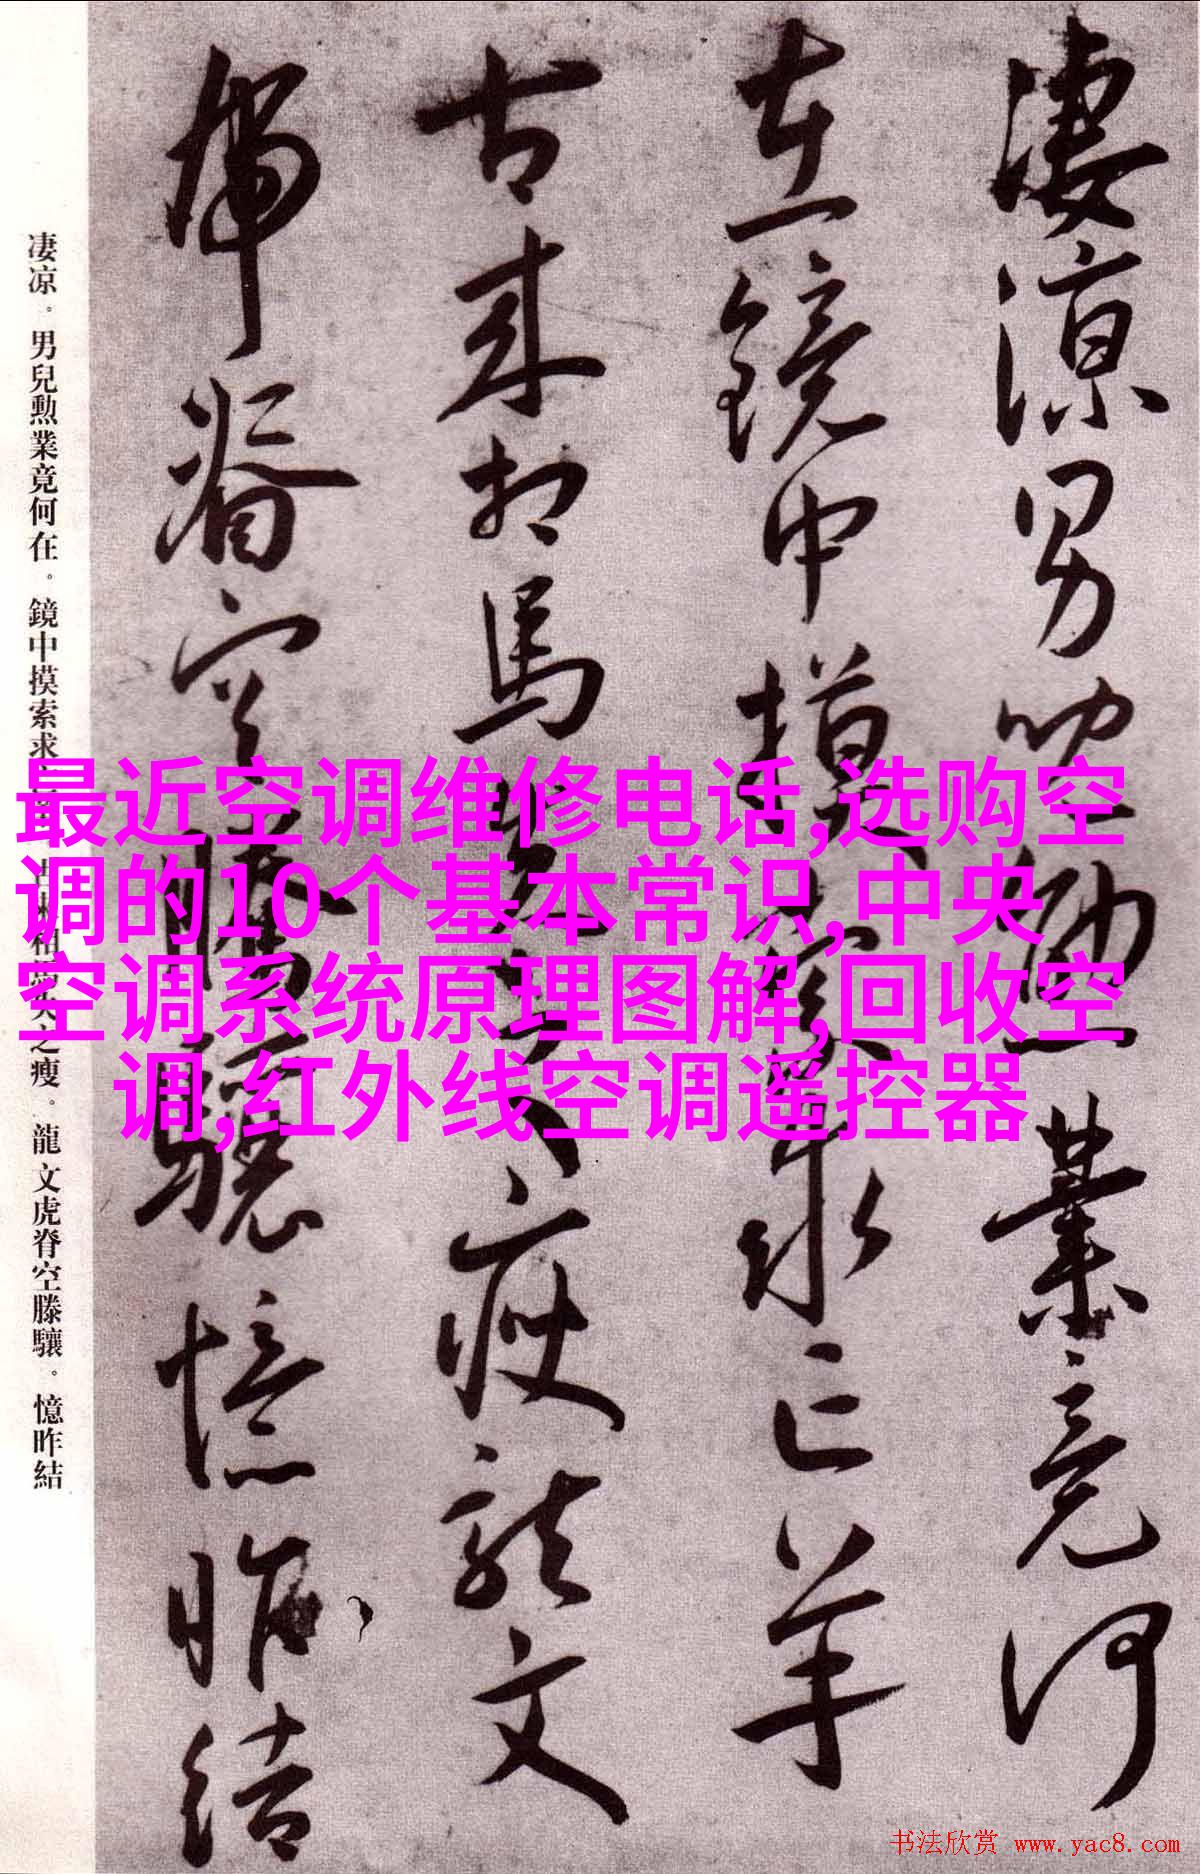 淒涼男兒勳業竟何
在鏡中摸索求巳羊
古来相馬失之瘦龍文
虎脊空騰驤憶昨結
凄凉。男兒勳業竟何在。鏡中摸索求
相
之瘦。龍文虎脊空滕驤。憶昨結
最近空调维修电话,选购空
调的10个基本常识,中央
空调系统原理图解,回收空
调,红外线空调遥控器
书法欣赏 www.yac8.com